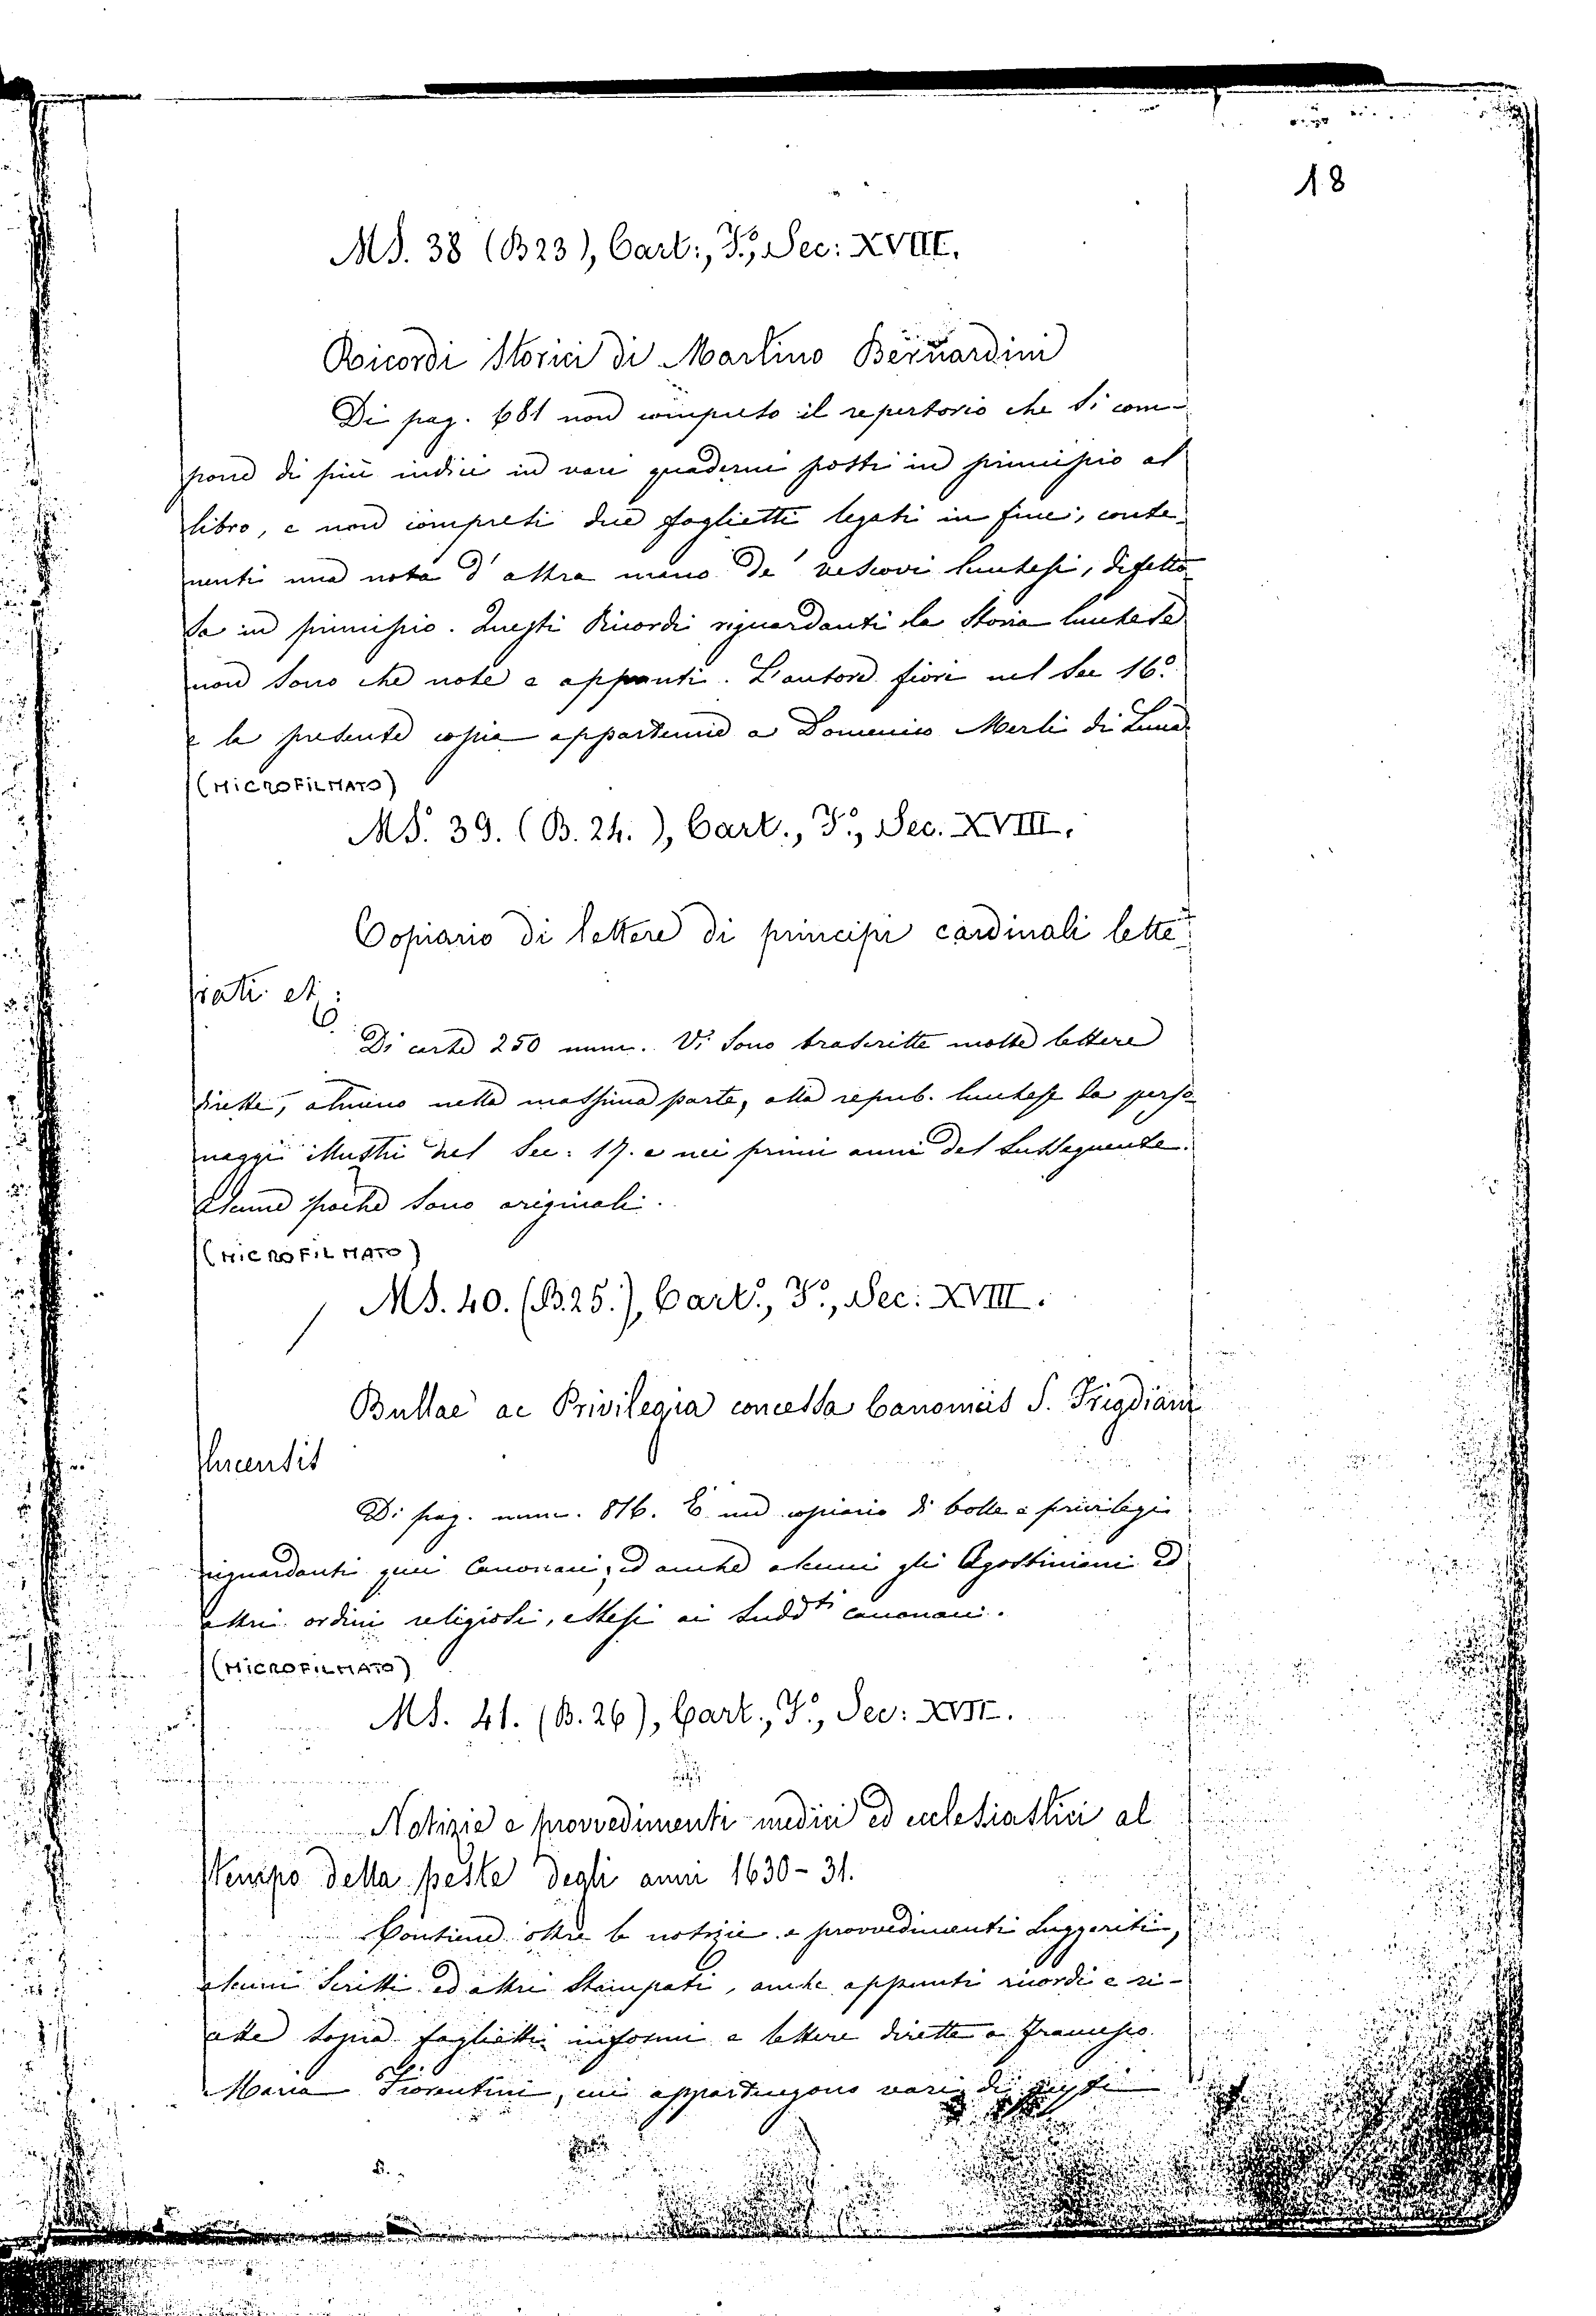 18
MS. 38 (B23), Cart:, F.º, Sec: XVIII.
Ricordi Storici di Martino Bernardini
Di pag. 681 non compreto il repertorio che si com-
pone di più indici in vari quaderni posti in principio al
libro, e non compresi due foglietti legati in fine, conte-
nenti una nota d'altra mano de' vescovi lucchesi, difetto-
sa in principio. Questi Ricordi riguardanti la Storia lucchese
non sono che note e appunti. L'autore fiorì nel Sec 16º
e la presente copia appartenne a Domenico Merli di Luna
(MICROFILMATO)
MS. 39. (B. 24.), Cart., F.º, Sec. XVIII.
Copiario di lettere di principi cardinali lette-
rati etc:
Di carte 250 num. Vi sono trascritte molte lettere
dirette, almeno nella massima parte, alla repub. lucchese da perso-
naggi illustri nel Sec: 17. e nei primi anni del susseguente.
Alcune poche sono originali.
(MICROFILMATO)
MS. 40. (B.25.), Cart., F.º, Sec: XVIII.
Bullae ac Privilegia concessa Canonicis S. Frigdiani
Lucensis
Di pag. num. 816. È un copiario di bolle e privilegi
riguardanti quei Canonaci, ed anche alcuni gli Agostiniani ed
altri ordini religiosi, estesi ai sudd.ti canonaci.
(MICROFILMATO)
MS. 41. (B. 26), Cart., F.º, Sec: XVII.
Notizie e provvedimenti medici ed ecclesiastici al
tempo della peste degli anni 1630-31.
Contiene oltre le notizie e provvedimenti suggeriti,
alcuni scritti ed altri stampati, anche appunti ricordi e ri-
cette sopra foglietti informi e lettere dirette a Francesco
Maria Fiorentini, cui appartengono vari di questi